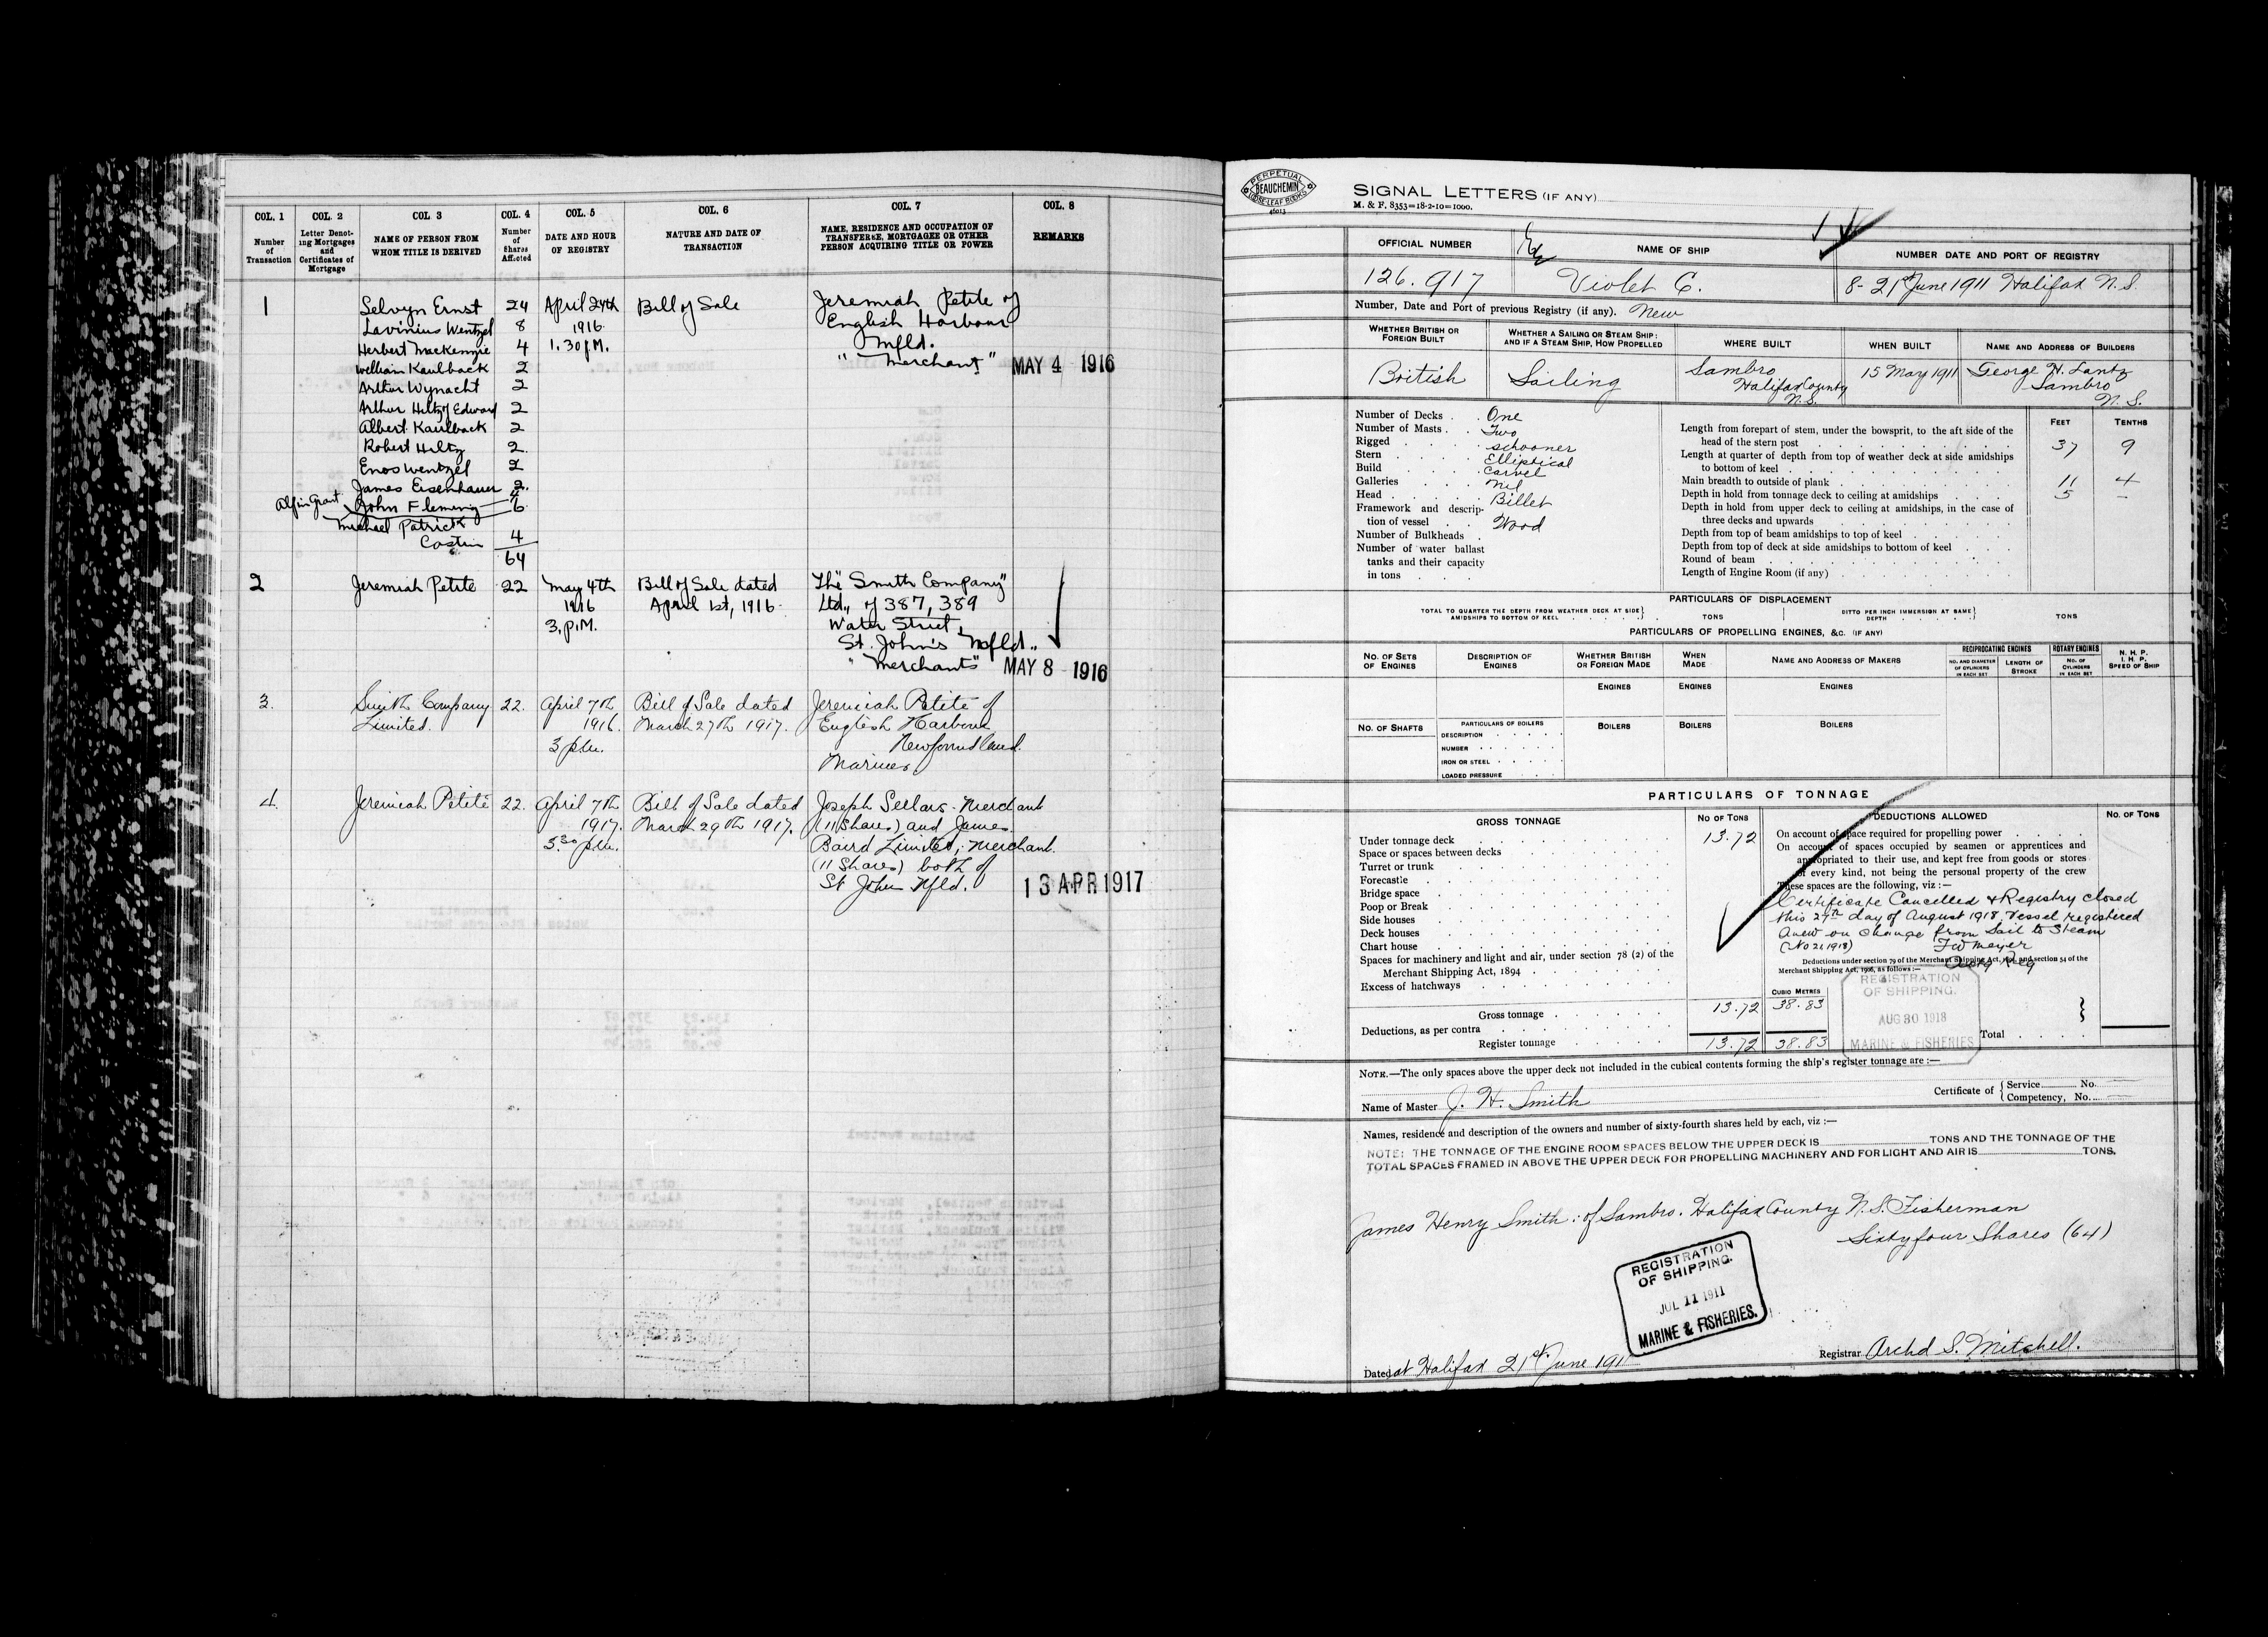 COL. 1
Number
of
Transaction
COL. 2
Letter Denot-
ing Mortgages
and
Certificates of
Mortgage
COL. 3
NAME OF PERSON FROM
WHOM TITLE IS DERIVED
COL. 4
Number
of
Shares
Affected
COL. 5
DATE AND HOUR
OF REGISTRY
COL. 6
NATURE AND DATE OF
TRANSACTION
COL. 7
NAME, RESIDENCE AND OCCUPATION OF
TRANSFEREE, MORTGAGEE OR OTHER
PERSON ACQUIRING TITLE OR POWER
COL. 8
REMARKS
1 Selvyn Ernst 24 April 24th Bill of Sale Jeremiah Petite of
Lavinius Wentzel 8 1916 English Harbour
Herbert Mackenzie 4 1.30 P.M. Nfld.
William Kaulback 2 "Merchant" MAY 4 1916
Arthur Wynacht 2
Arthur Hiltz of Edward 2
Albert Kaulback 2
Robert Hiltz 2
Enos Wentzel 2
James Eisenhauer 2
Alfin Grant John Fleming 6
Michael Patrick
Costin 4
64
2 Jeremiah Petite 22 May 4th Bill of Sale dated The "Smith Company"
1916 April 1st, 1916 Ltd., of 387, 389
3. P.M. Water Street,
St. John's Nfld.,
"Merchants" MAY 8 1916
3. Smith Company 22. April 7th Bill of Sale dated Jeremiah Petite of
Limited. 1916. March 27th 1917. English Harbour
3 p.m. Newfoundland.
Mariner.
4. Jeremiah Petite 22. April 7th Bill of Sale dated Joseph Sellars. Merchant
1917. March 29th 1917. (11 Shares) and James
5.30 p.m. Baird Limited, Merchant.
(11 Shares) both of
St John Nfld. 13 APR 1917
PERPETUAL
BEAUCHEMIN
LOOSE-LEAF BOOKS
46013
SIGNAL LETTERS (IF ANY)
M. & F. 8353=18-2-10=1000.
OFFICIAL NUMBER NAME OF SHIP NUMBER DATE AND PORT OF REGISTRY
126.917 Violet C. 8- 21st June 1911 Halifax N.S.
Number, Date and Port of previous Registry (if any). New
WHETHER BRITISH OR
FOREIGN BUILT
WHETHER A SAILING OR STEAM SHIP:
AND IF A STEAM SHIP, HOW PROPELLED
WHERE BUILT WHEN BUILT NAME AND ADDRESS OF BUILDERS
British Sailing Sambro 15 May 1911 George H. Lantz
Halifax County Sambro
N.S. N.S.
Number of Decks One
Number of Masts Two
Rigged schooner
Stern Elliptical
Build Carvel
Galleries Nil
Head Billet
Framework and descrip-
tion of vessel Wood
Number of Bulkheads
Number of water ballast
tanks and their capacity
in tons
FEET TENTHS
Length from forepart of stem, under the bowsprit, to the aft side of the
head of the stern post 37 9
Length at quarter of depth from top of weather deck at side amidships
to bottom of keel
Main breadth to outside of plank 11 4
Depth in hold from tonnage deck to ceiling at amidships 5 —
Depth in hold from upper deck to ceiling at amidships, in the case of
three decks and upwards
Depth from top of beam amidships to top of keel
Depth from top of deck at side amidships to bottom of keel
Round of beam
Length of Engine Room (if any)
PARTICULARS OF DISPLACEMENT
TOTAL TO QUARTER THE DEPTH FROM WEATHER DECK AT SIDE
AMIDSHIPS TO BOTTOM OF KEEL TONS
DITTO PER INCH IMMERSION AT SAME
DEPTH TONS
PARTICULARS OF PROPELLING ENGINES, &C. (IF ANY)
NO. OF SETS
OF ENGINES
DESCRIPTION OF
ENGINES
WHETHER BRITISH
OR FOREIGN MADE
WHEN
MADE
NAME AND ADDRESS OF MAKERS
RECIPROCATING ENGINES
NO. AND DIAMETER
OF CYLINDERS
IN EACH SET
LENGTH OF
STROKE
ROTARY ENGINES
NO. OF
CYLINDERS
IN EACH SET
N. H. P.
I. H. P.
SPEED OF SHIP
ENGINES ENGINES ENGINES
NO. OF SHAFTS PARTICULARS OF BOILERS BOILERS BOILERS BOILERS
DESCRIPTION
NUMBER
IRON OR STEEL
LOADED PRESSURE
PARTICULARS OF TONNAGE
GROSS TONNAGE NO OF TONS DEDUCTIONS ALLOWED NO. OF TONS
Under tonnage deck 13.72
Space or spaces between decks
Turret or trunk
Forecastle
Bridge space
Poop or Break
Side houses
Deck houses
Chart house
Spaces for machinery and light and air, under section 78 (2) of the
Merchant Shipping Act, 1894
Excess of hatchways
Gross tonnage 13.72
Deductions, as per contra
Register tonnage 13.72
CUBIC METRES
38.83
38.83
On account of space required for propelling power
On account of spaces occupied by seamen or apprentices and
appropriated to their use, and kept free from goods or stores
of every kind, not being the personal property of the crew
These spaces are the following, viz :—
Certificate Cancelled & Registry closed
this 27th day of August 1918. Vessel registered
Anew on change from Sail to Steam
(No 21 1918) F W Meyer
Actg Reg
Deductions under section 79 of the Merchant Shipping Act, 1894, and section 54 of the
Merchant Shipping Act, 1906, as follows :—
REGISTRATION
OF SHIPPING.
AUG 30 1918
MARINE & FISHERIES
Total
NOTE.—The only spaces above the upper deck not included in the cubical contents forming the ship's register tonnage are :—
Name of Master J. H. Smith
Certificate of Service No. —
Competency, No. —
Names, residence and description of the owners and number of sixty-fourth shares held by each, viz :—
NOTE: THE TONNAGE OF THE ENGINE ROOM SPACES BELOW THE UPPER DECK IS TONS AND THE TONNAGE OF THE
TOTAL SPACES FRAMED IN ABOVE THE UPPER DECK FOR PROPELLING MACHINERY AND FOR LIGHT AND AIR IS TONS.
James Henry Smith: of Sambro. Halifax County N.S. Fisherman
Sixty four Shares (64)
REGISTRATION
OF SHIPPING.
JUL 11 1911
MARINE & FISHERIES.
Dated at Halifax 21st June 191
Registrar Archd S. Mitchell.